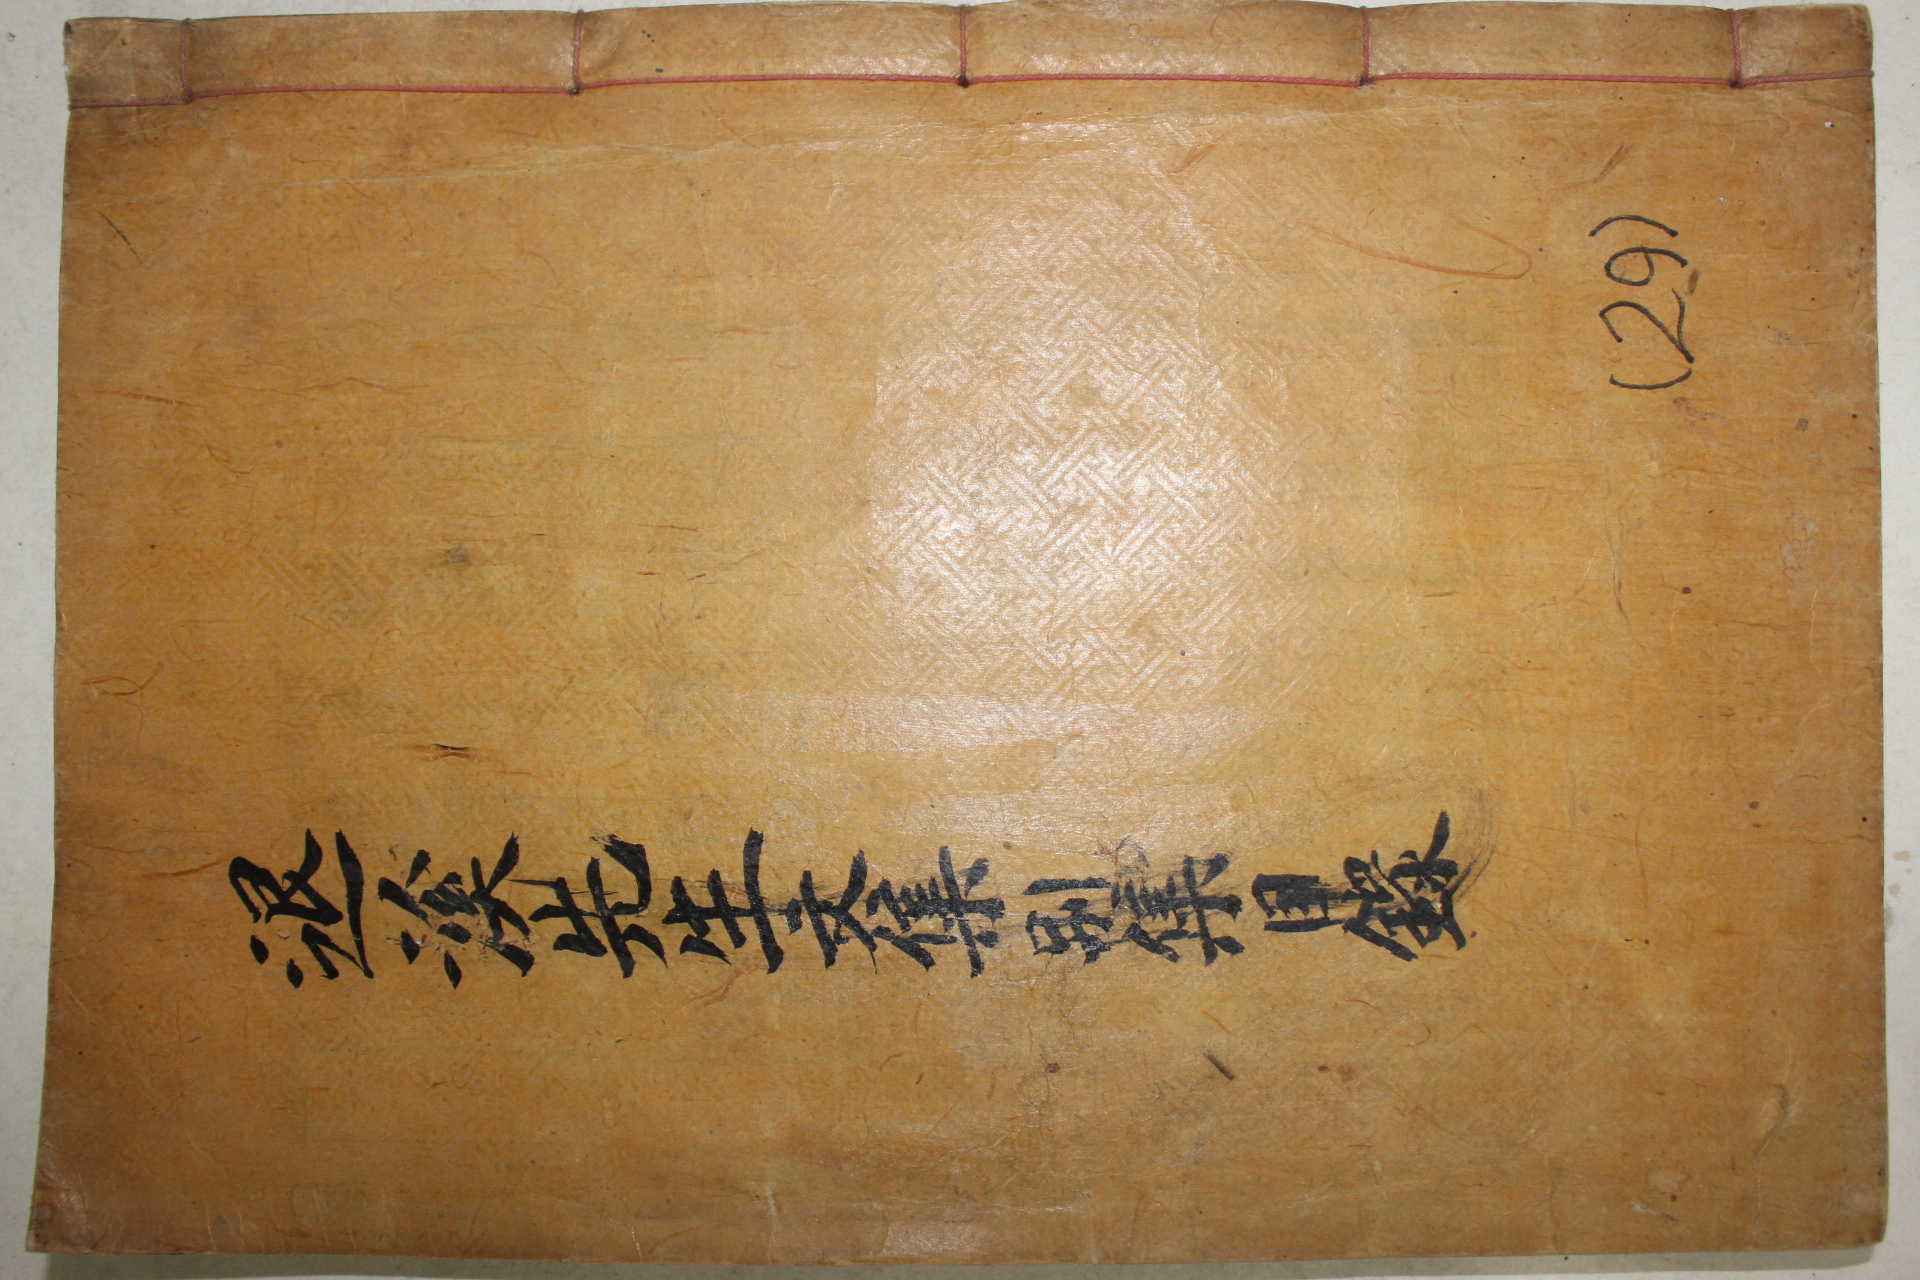 退溪先生文集別集目錄
(29)